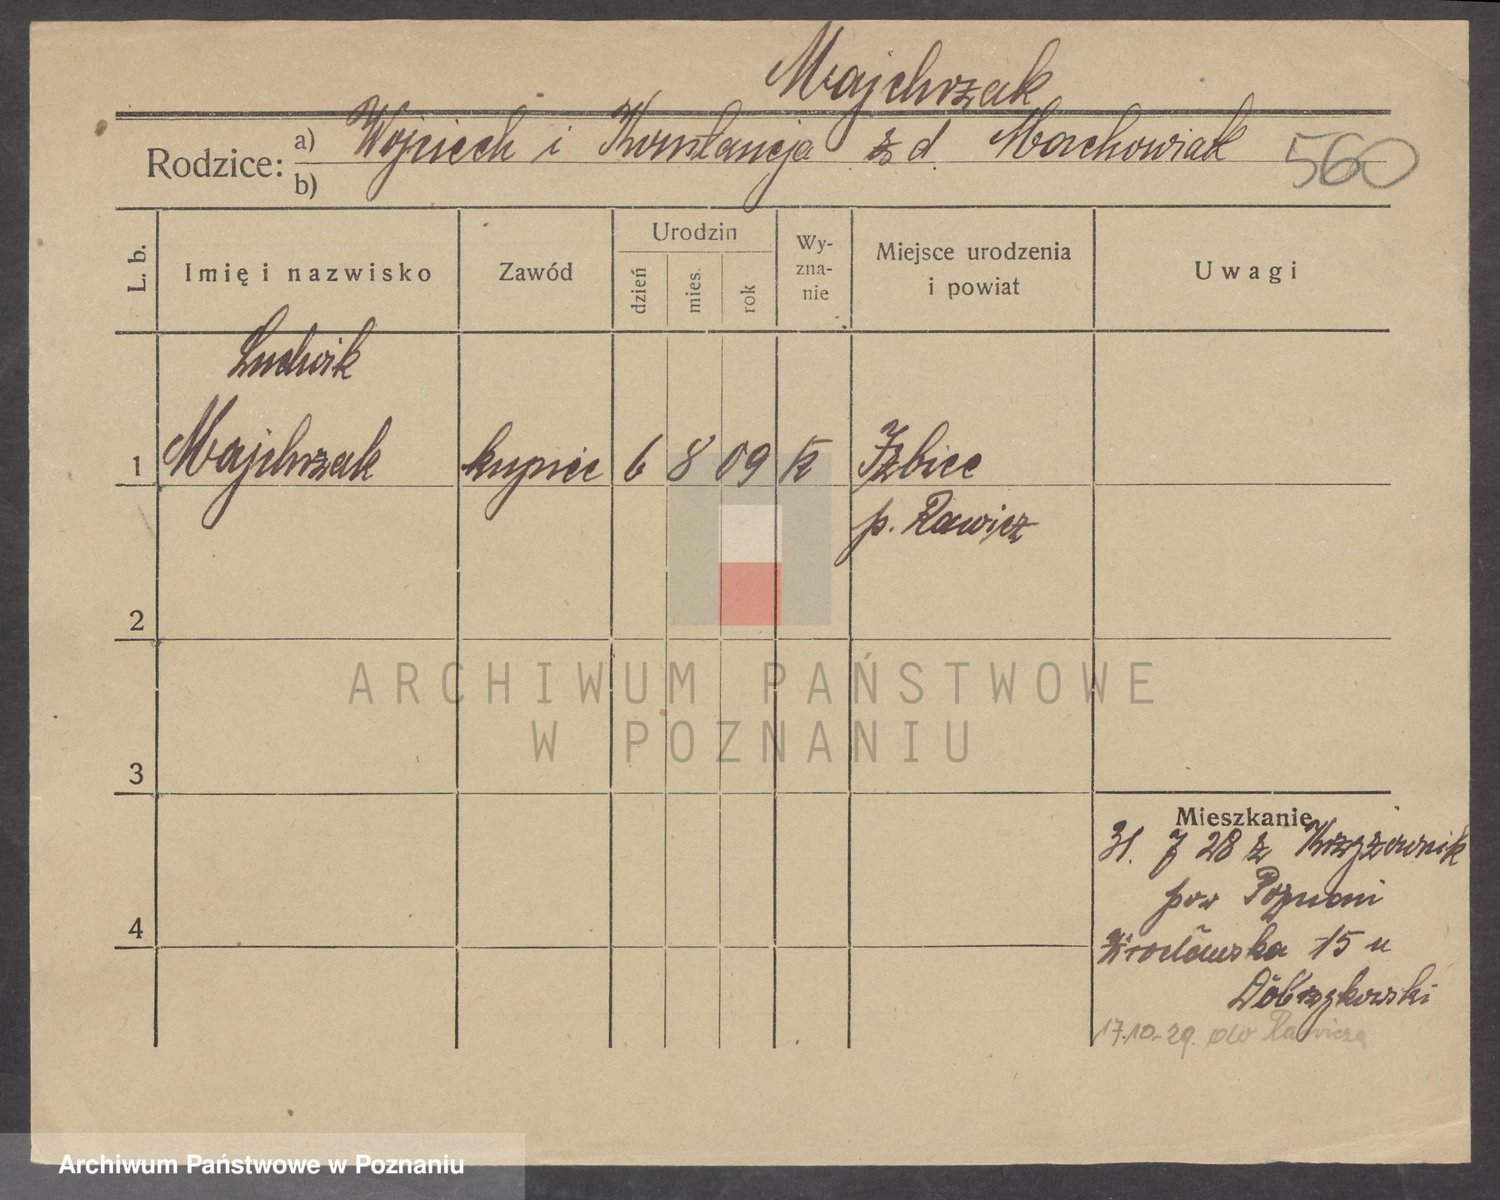 Majchrzak
Rodzice: a) Wojciech i Konstancja z d. Machowiak 560
b)
L. b. Imię i nazwisko Zawód Urodzin dzień mies. rok Wy-zna-nie Miejsce urodzenia i powiat Uwagi
Ludwik
1 Majchrzak kupiec 6 8 09 k Izbice
p. Rawicz
2
ARCHIWUM PAŃSTWOWE
W POZNANIU
3
Mieszkanie
31. 7 28 z Krzyżownik
pow Poznań
4
Wrocławska 15 u
Dobrzykowski
17.10.29. do Rawicza
Archiwum Państwowe w Poznaniu